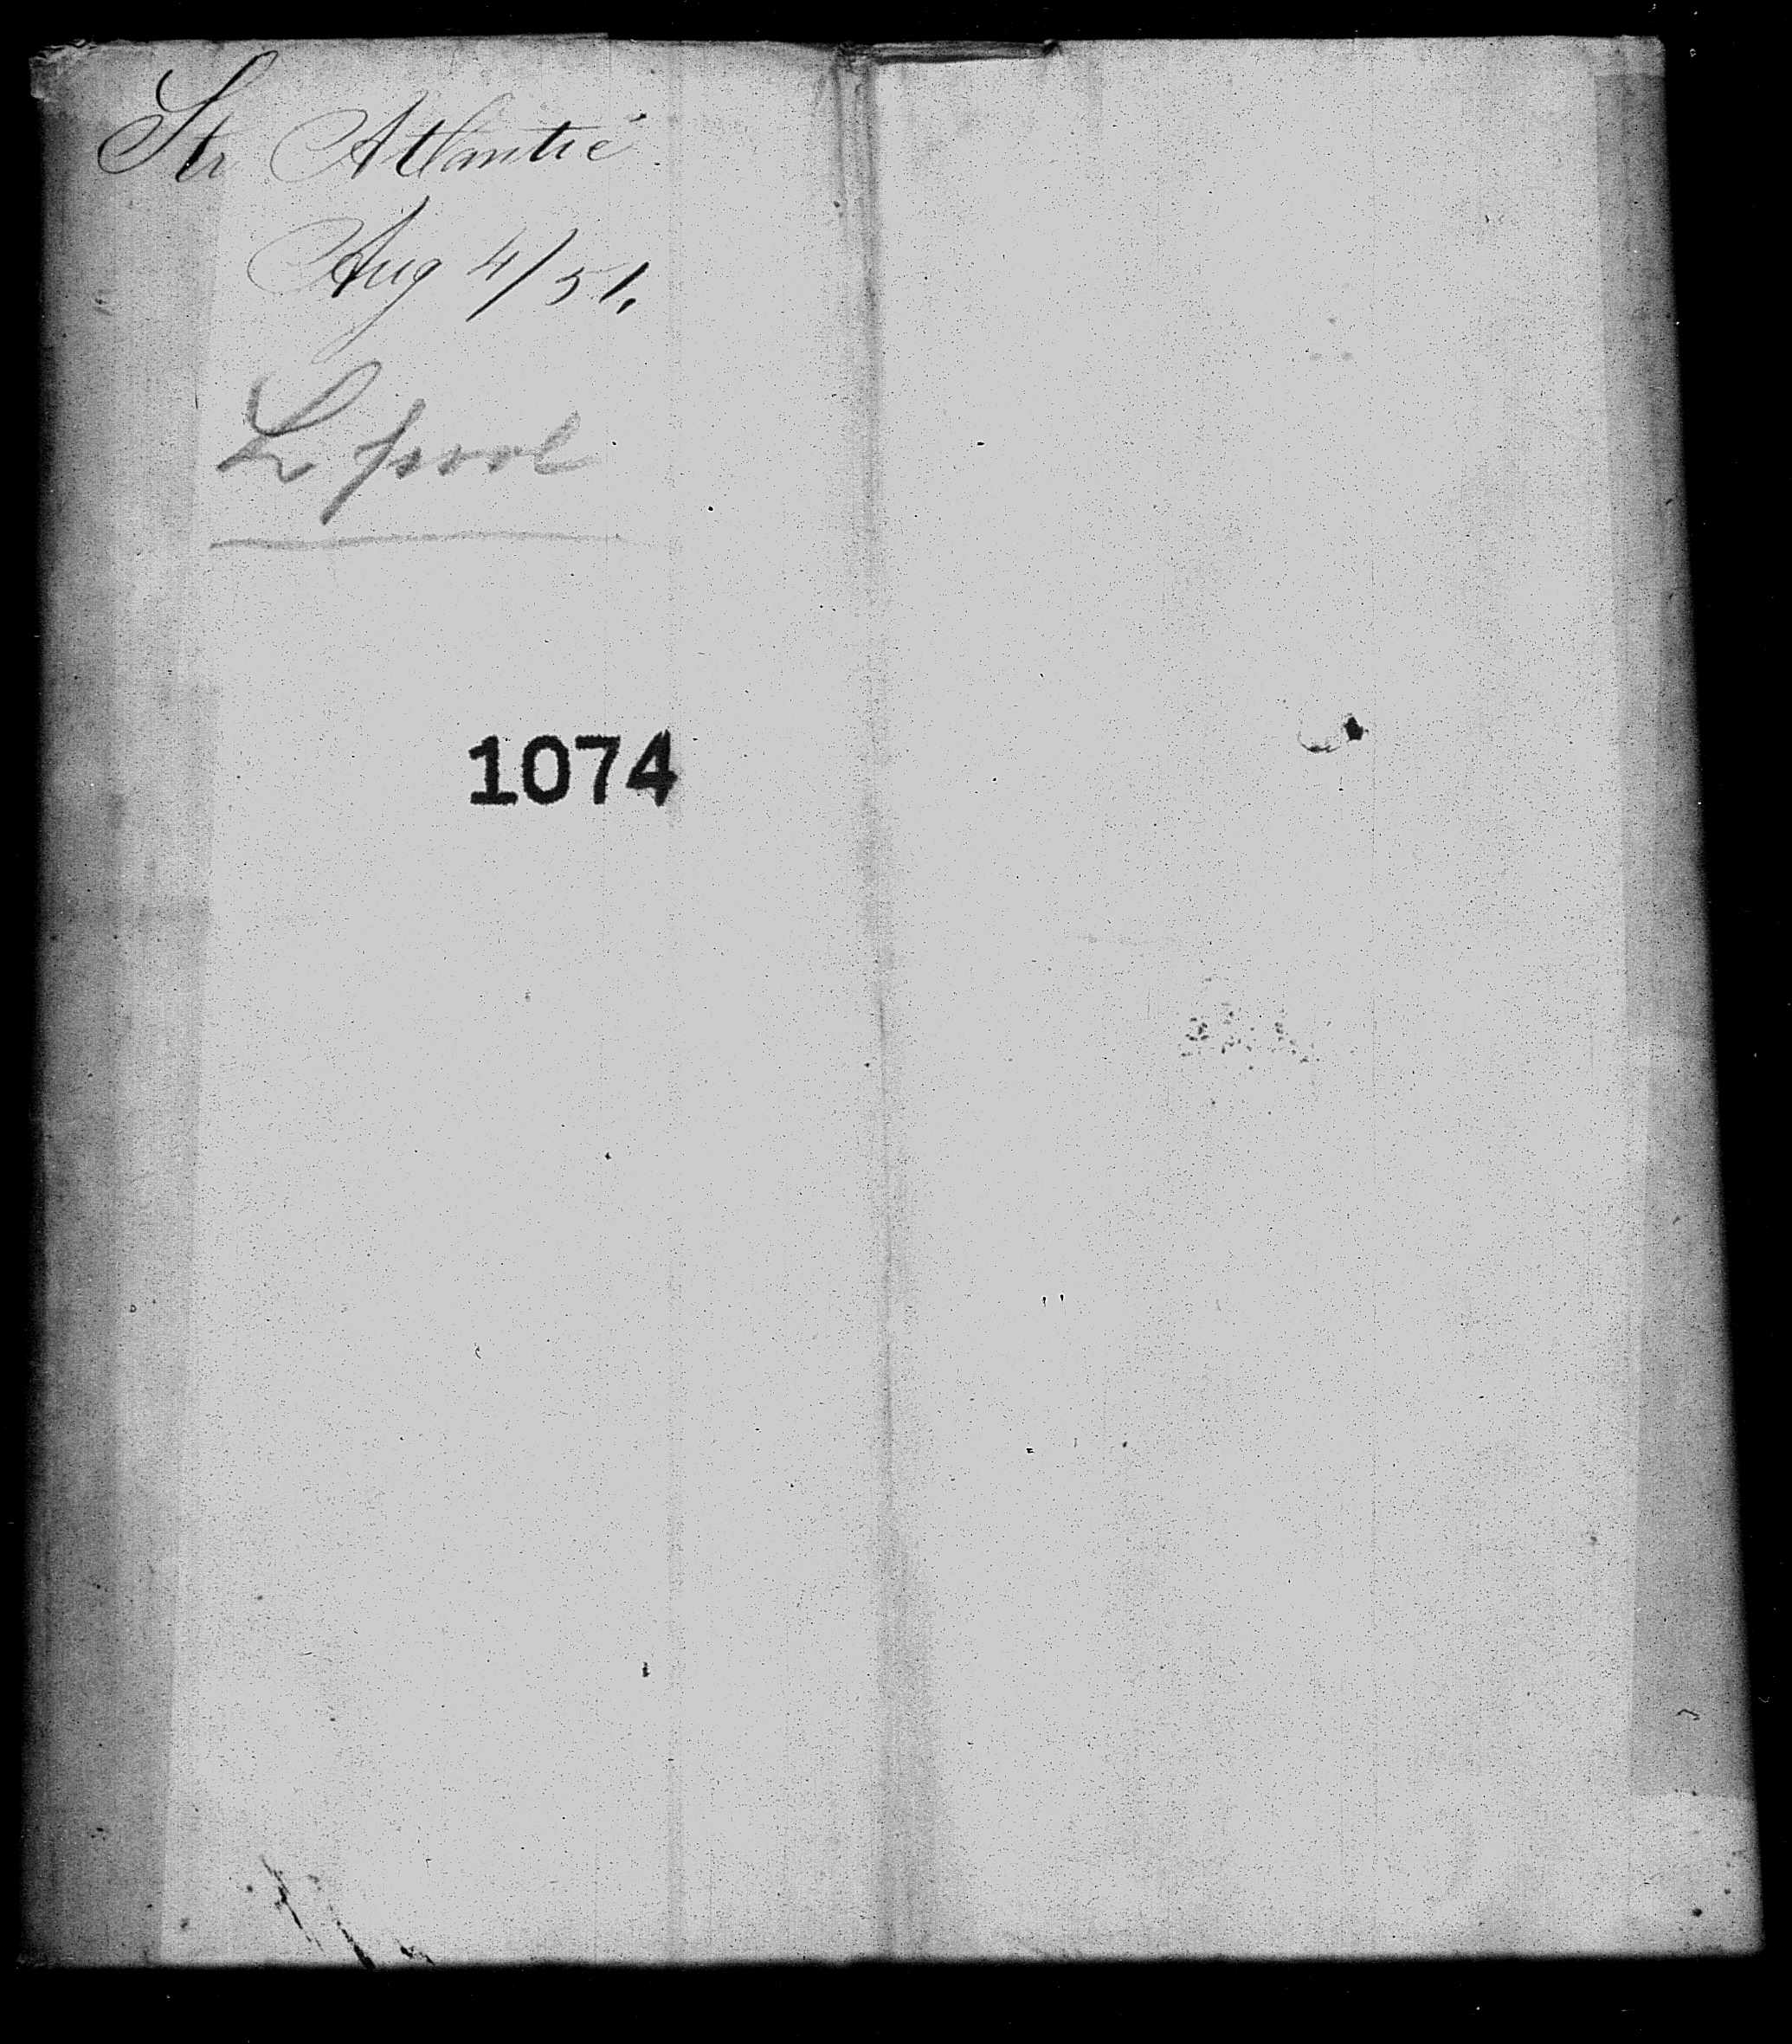 Str Atlantic
Aug 4/51.
L pool
1074